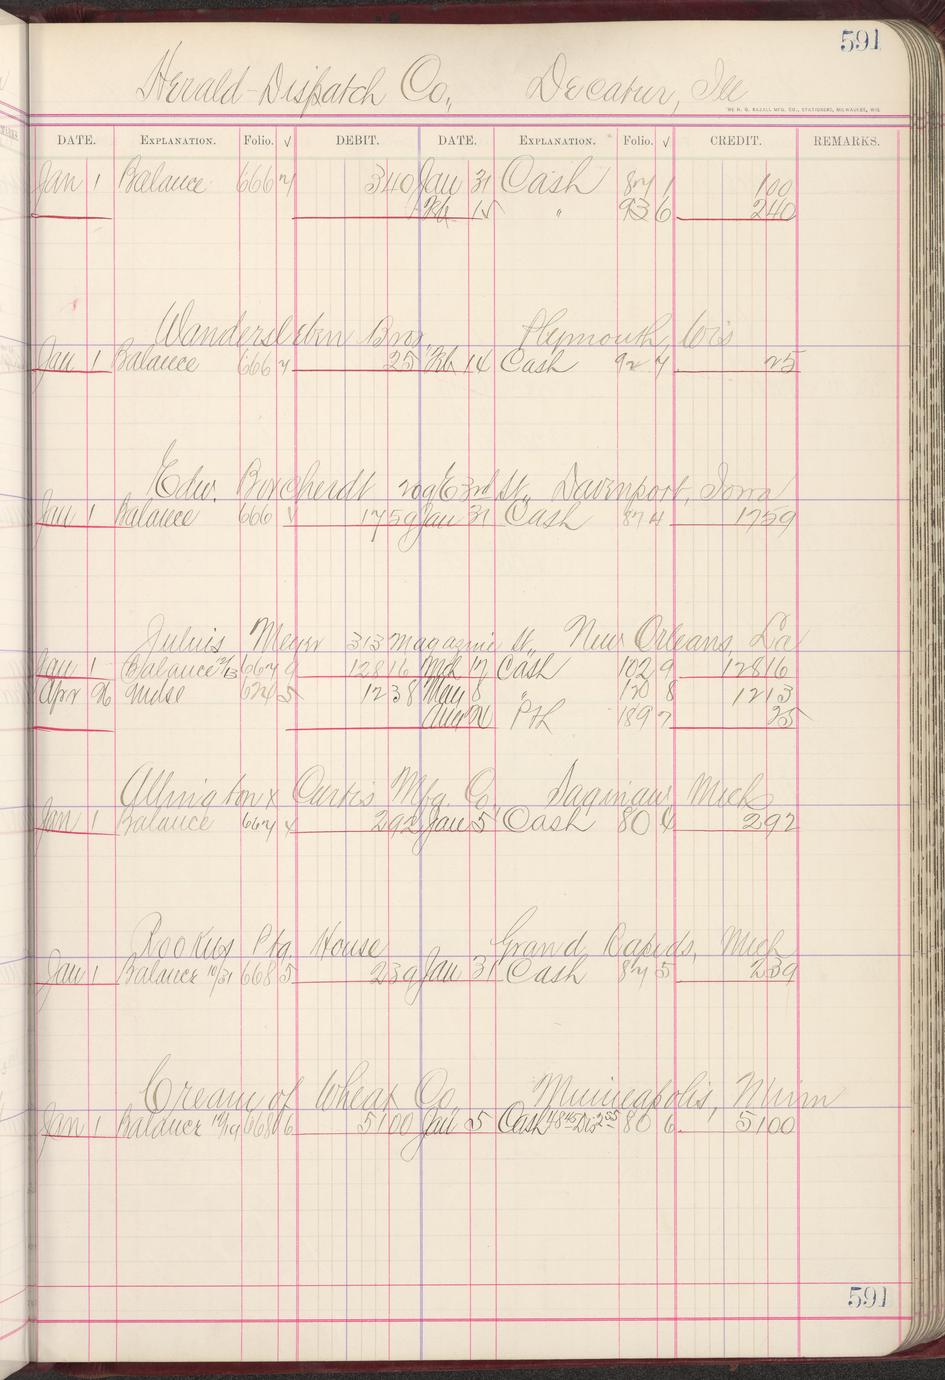 591
Herald-Dispatch Co., Decatur, Ill
THE H. G. RAZALL MFG. CO., STATIONERS, MILWAUKEE, WIS.
DATE. EXPLANATION. Folio. √ DEBIT. DATE. EXPLANATION. Folio. √ CREDIT. REMARKS.
Jan 1 Balance 666 7 340 Jan 31 Cash 87 1 100
Feb 15 " 93 6 240
Wandersleben Bros. Plymouth, Wis
Jan 1 Balance 666 7 25 Feb 14 Cash 92 7 25
Edw. Borcherdt 209 E 3rd St., Davenport, Iowa
Jan 1 Balance 666 √ 1759 Jan 31 Cash 87 4 1759
Julius Meyer 313 Magazine St., New Orleans, La
Jan 1 Balance 667 9 12816 Mch 17 Cash 102 9 12816
Apr 26 Mdse 624 5 1238 May 8 " 120 8 1213
25 189 7 25
Allington & Curtis Mfg. Co., Saginaw, Mich
Jan 1 Balance 667 292 Jan 5 Cash 80 4 292
Rookus Ptg. House Grand Rapids, Mich
Jan 1 Balance 10/31 668 5 239 Jan 31 Cash 87 5 239
Cream of Wheat Co Minneapolis, Minn
Jan 1 Balance 12/19 668 6 5100 Jan 5 Cash 48 45 Dis 2 55 80 6 5100
591